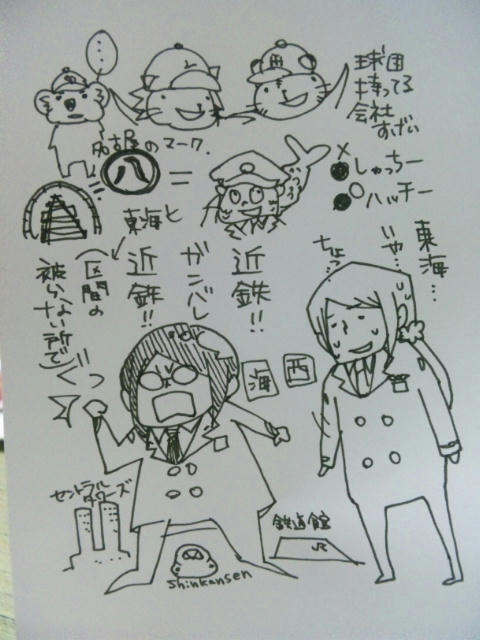 …
球団
持ってる
会社
すげい
名古屋のマーク.
八
=
×しゃっちー
○ハッチー
東海と
近鉄!!
ガンバレ
近鉄!!
(区間の
被らない所で)
東海…
いや…
ちょっ…
海
西
セントラル
タワーズ
鉄道館
JR
Shinkansen